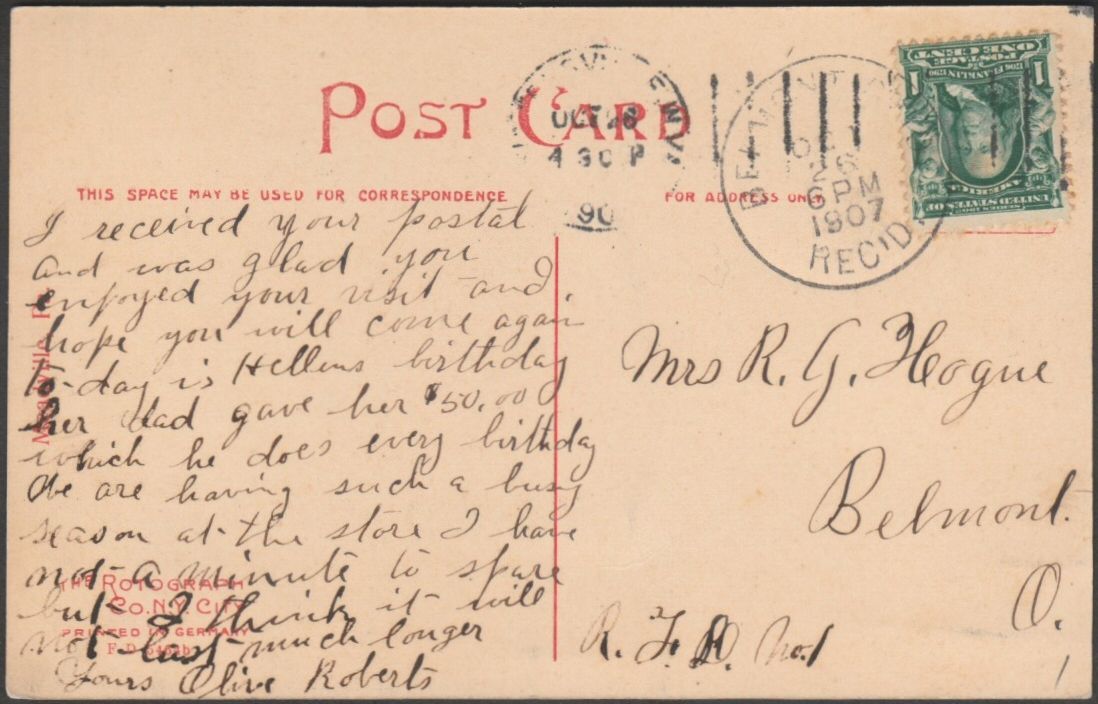 POST CARD
THIS SPACE MAY BE USED FOR CORRESPONDENCE
FOR ADDRESS ONLY
OCT 26
4 30 P
190
BELMONT
OCT
26
6 PM
1907
REC'D.
POSTAGE
ONE CENT
1 1
1706 FRANKLIN 1790
SERIES 1902
UNITED STATES OF
AMERICA
I received your postal
and was glad you
enjoyed your visit and
hope you will come again
To-day is Hellens birthday
her dad gave her $50.00
which he does every birthday
We are having such a busy
season at the store I have
not a minute to spare
but I think it will
not last much longer
Yours Olive Roberts
Mrs R. G. Hogue
Belmont.
O.
R. F. D. No. 1
THE ROTOGRAPH
CO. N.Y. CITY
PRINTED IN GERMANY